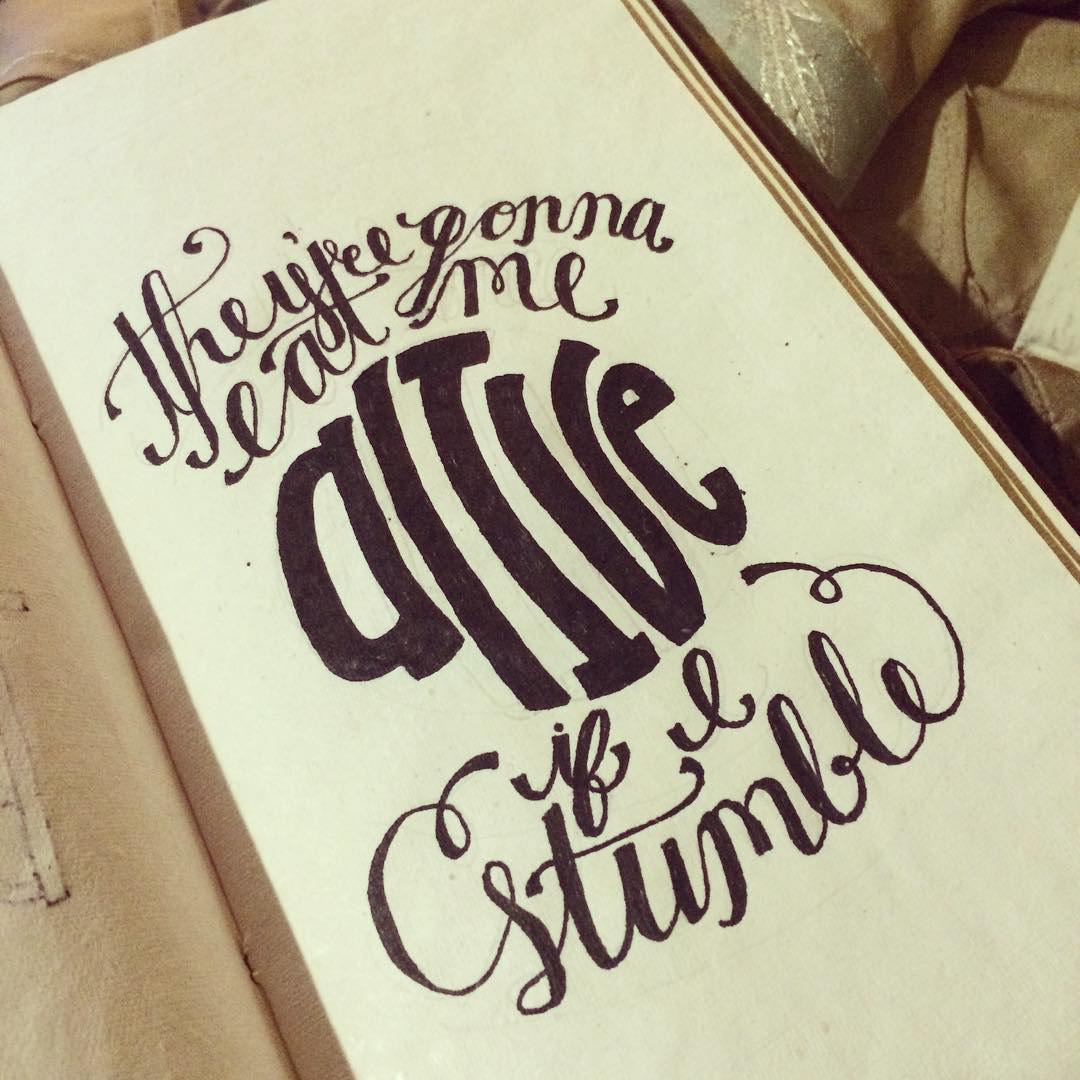 they're gonna
eat me
alive
if I
stumble